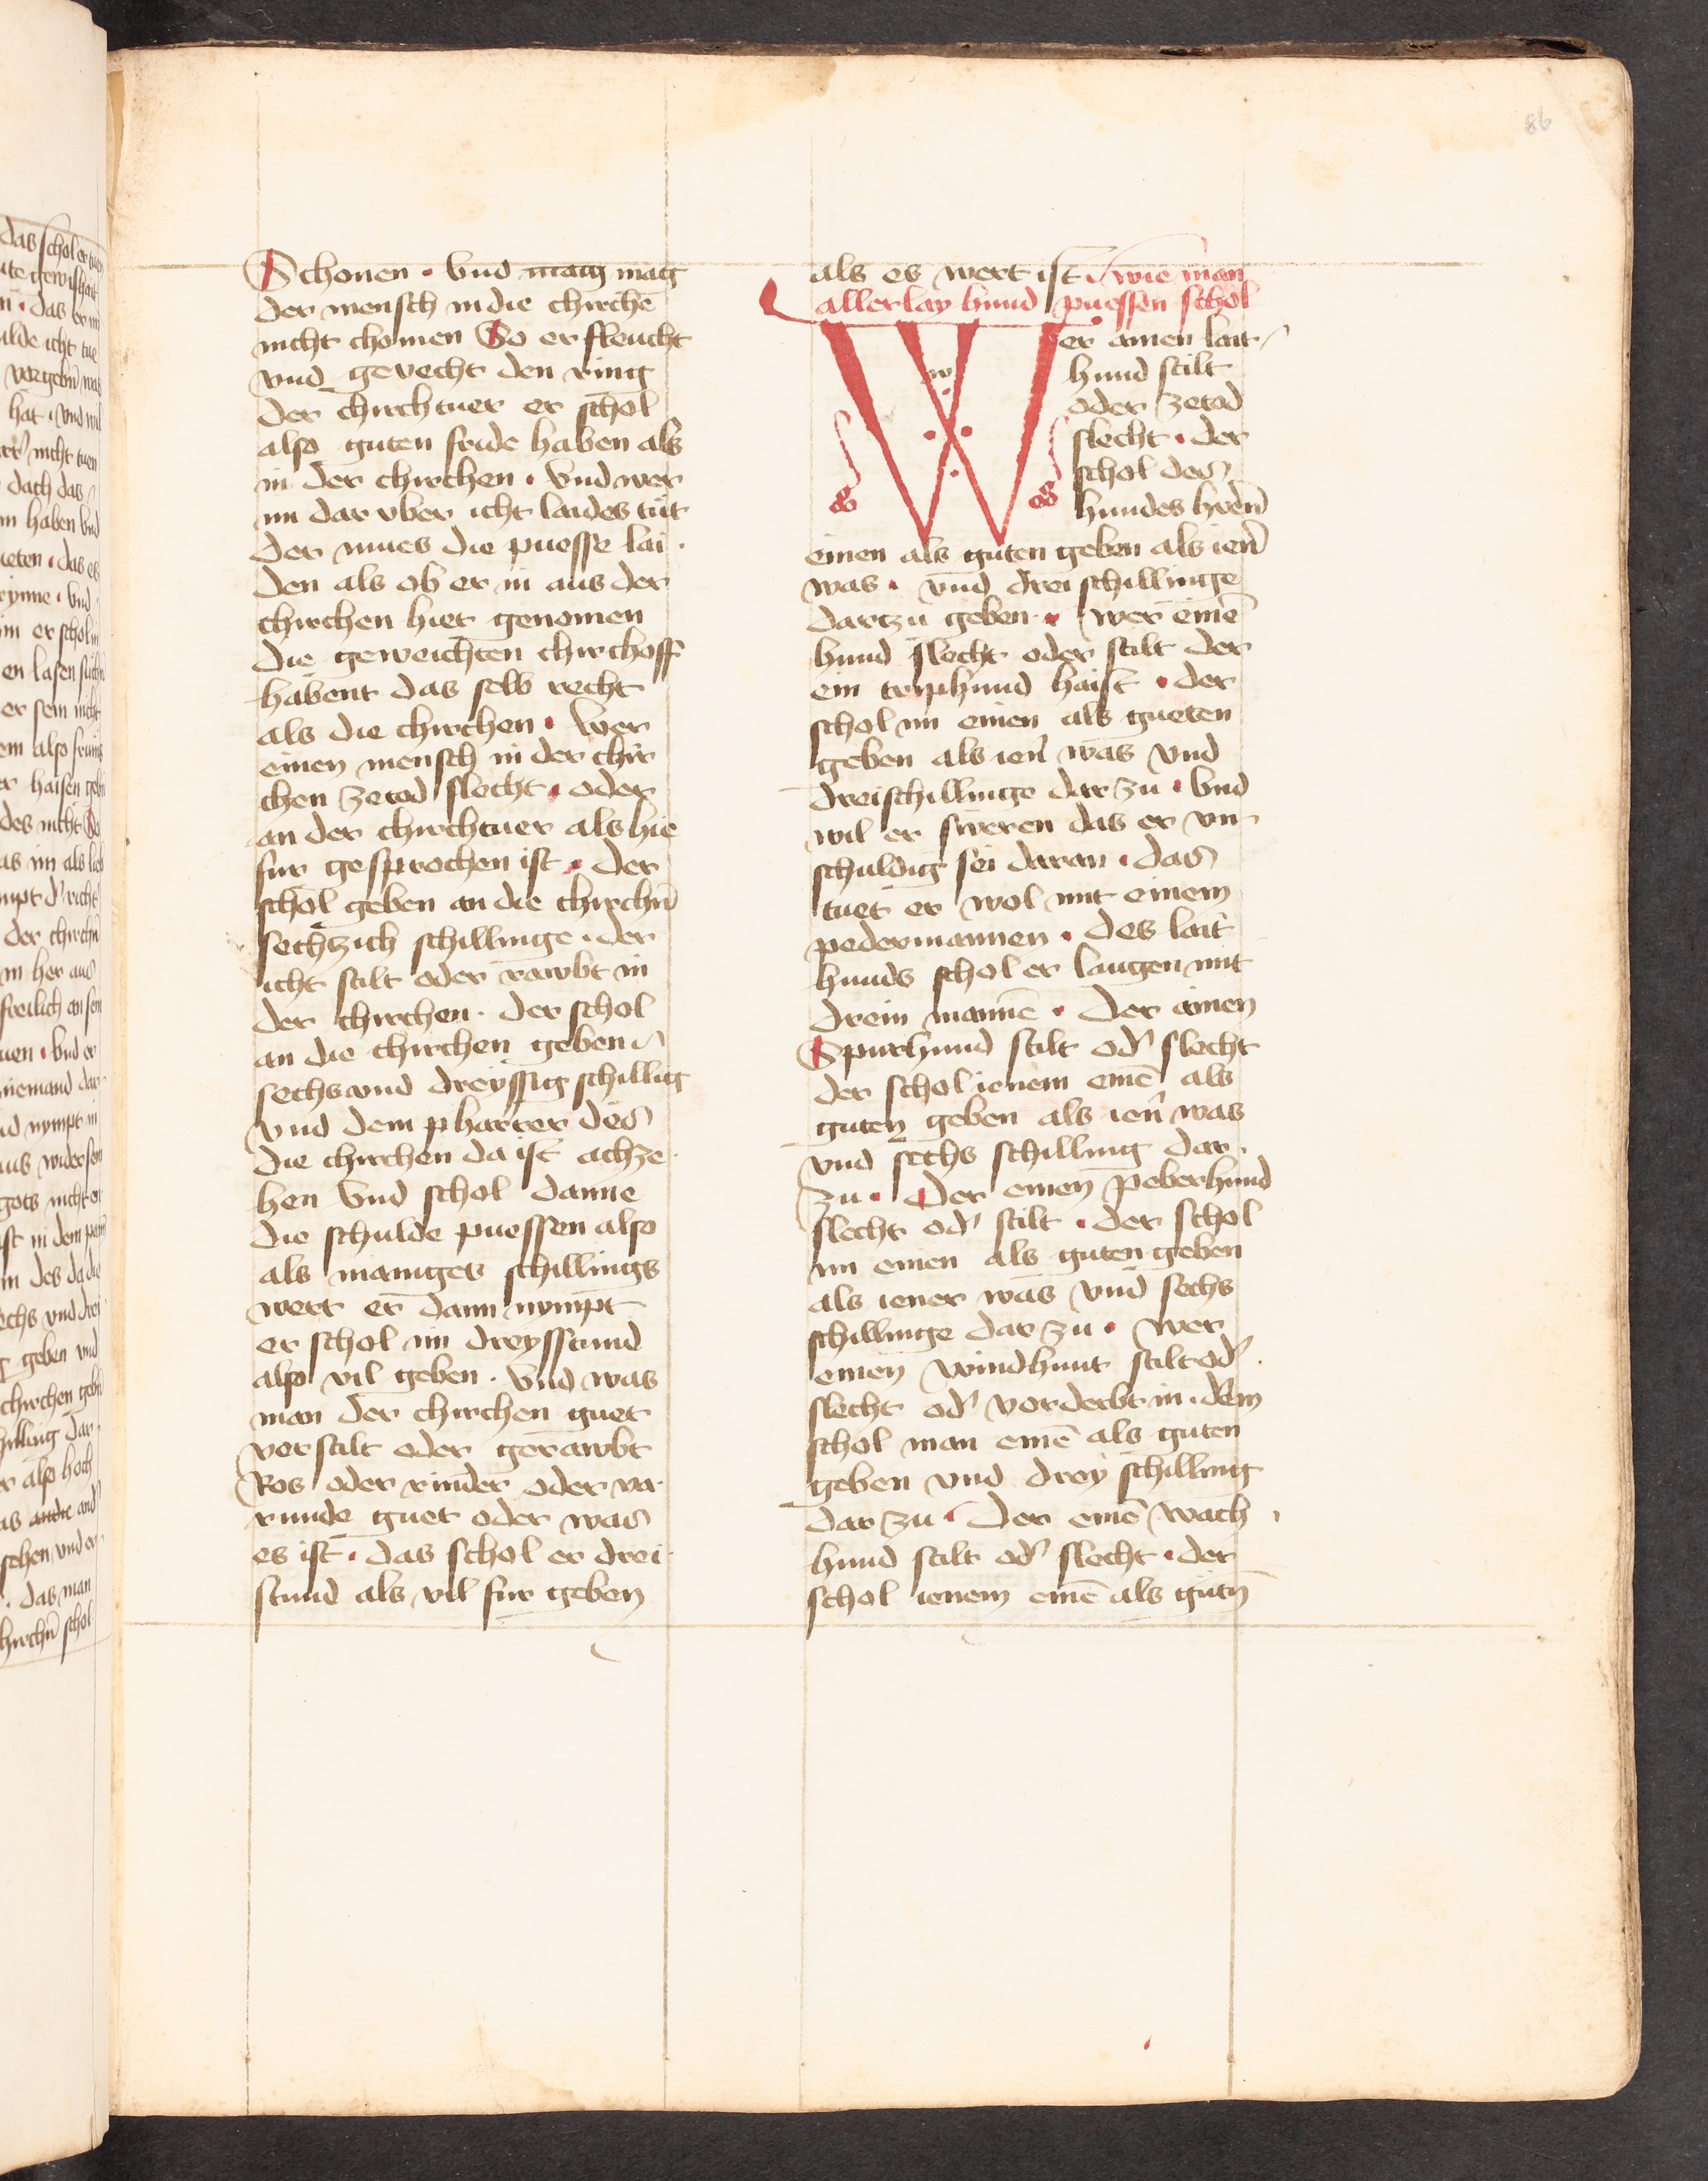 86
Schonen · Vnd mag mag
der mensch in die chirchē
nicht chomen So er fleucht
vnd gevecht den ring
der chirchtuer er schol
also guten fride haben als
in der chirchen · Vnd wer
im dar vber icht laides tüt
der mues die puesse lai ·
den als ob er in aus der
chirchen hiet genomen
die geweichten chirchoff
habent das selb recht
als die chirchen · Wer
einen mensch in der chir
chen ze tod slecht · oder
an der chirchtuer als hie
fur gesprochen ist · der
schol geben an die chirchn̄
sechtzich schillinge · der
icht stilt oder rawbt in
der chirchen · der schol
an die chirchen geben
sechs vnd dreyssig schillīg
vnd dem pharrer des
die chirchen da ist achze ·
hen Vnd schol danne
die schulde puessen also
als maniges schillings
wert er dann nympt
er schol im dreysstund
also vil geben · Vnd was
man der chirchen guet
verstilt oder gerawbt
Ros oder rinder oder va ·
runde guet oder was
es ist · das schol er drei ·
stund als vil fur geben
als es wert ist · wie man
allerlay hund puessen schol
Wer ainen lait ·
hund stilt
oder ze tod
slecht · der
schol des
hundes hrēn̄
einen als guten geben als ien̄
was · vnd drei schillinge
dartzu geben · wer einē
hund slecht oder stilt der
ein treiphund haist · der
schol im einen als gueten
geben als ien̄ was vnd
dreischillinge dar zu · Vnd
wil er sweren das er vn ·
schuldig sei daran · das
tuet er wol mit einem
pedermannen · des lait
hunds schol er laugen mit
drein mannē · Der ainen
Spurhund stilt od' slecht
der schol ienem einē als
guten geben als ien̄ was
vnd sechs schilling dar ·
zu · Der einen peberhund
slecht od' stilt · der schol
im einen als guten geben
als iener was vnd sechs
schillinge dar zu · wer
einen windhunt stilt od'
slecht od' vorderbt in · dem
schol man einē als guten
geben vnd drey schilling
dar zu · Der einē wach ·
hund stilt od' slecht · der
schol ienem einē als gutn̄